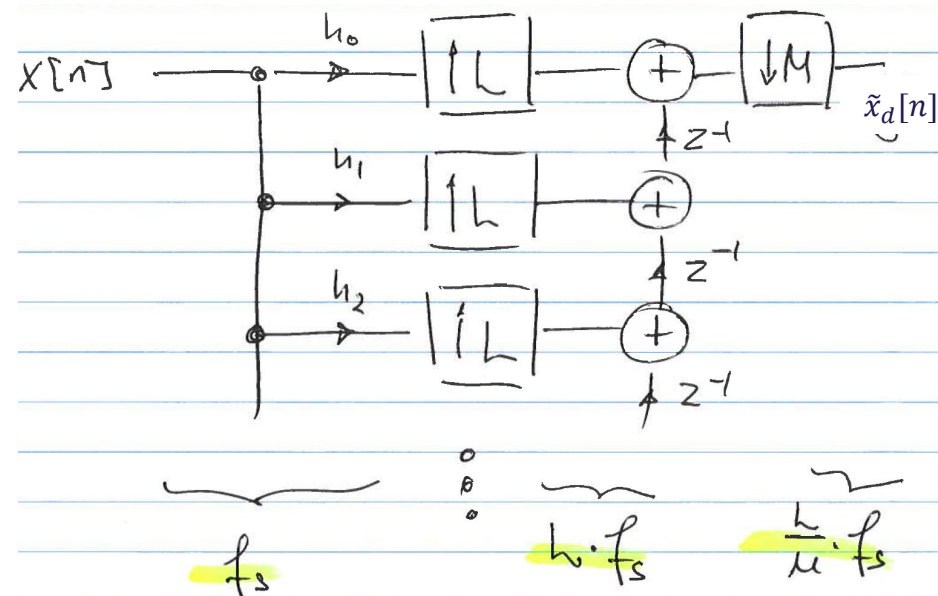 x[n] h₀ ↑L + ↓M x̃_d[n]
z⁻¹
h₁ ↑L +
z⁻¹
h₂ ↑L +
z⁻¹
f_s L·f_s L/M·f_s